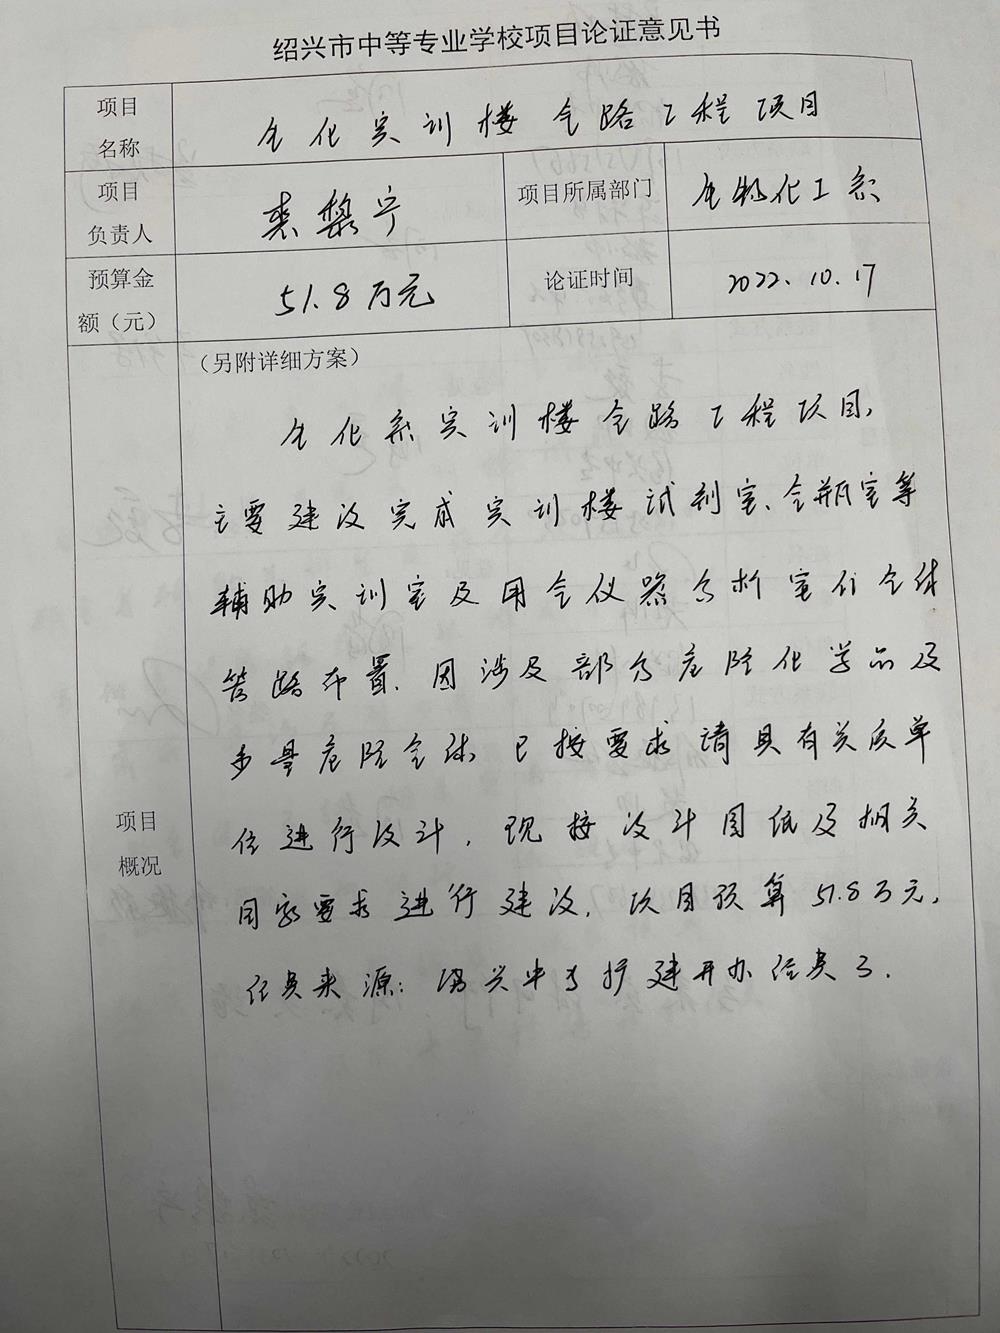 绍兴市中等专业学校项目论证意见书
项目名称
生化实训楼气路工程项目
项目负责人
裘黎宁
项目所属部门
生物化工系
预算金额（元）
51.8万元
论证时间
2022.10.17
项目概况
（另附详细方案）
生化系实训楼气路工程项目，
主要建设完成实训楼试剂室、气瓶室等
辅助实训室及用气仪器分析室们气体
管路布置，因涉及部分危险化学品及
多量危险气体，已按要求请具有关质单
位进行设计，现按设计图纸及相关
国家要求进行建设，项目预算51.8万元，
经费来源：绍兴中专扩建开办经费3.